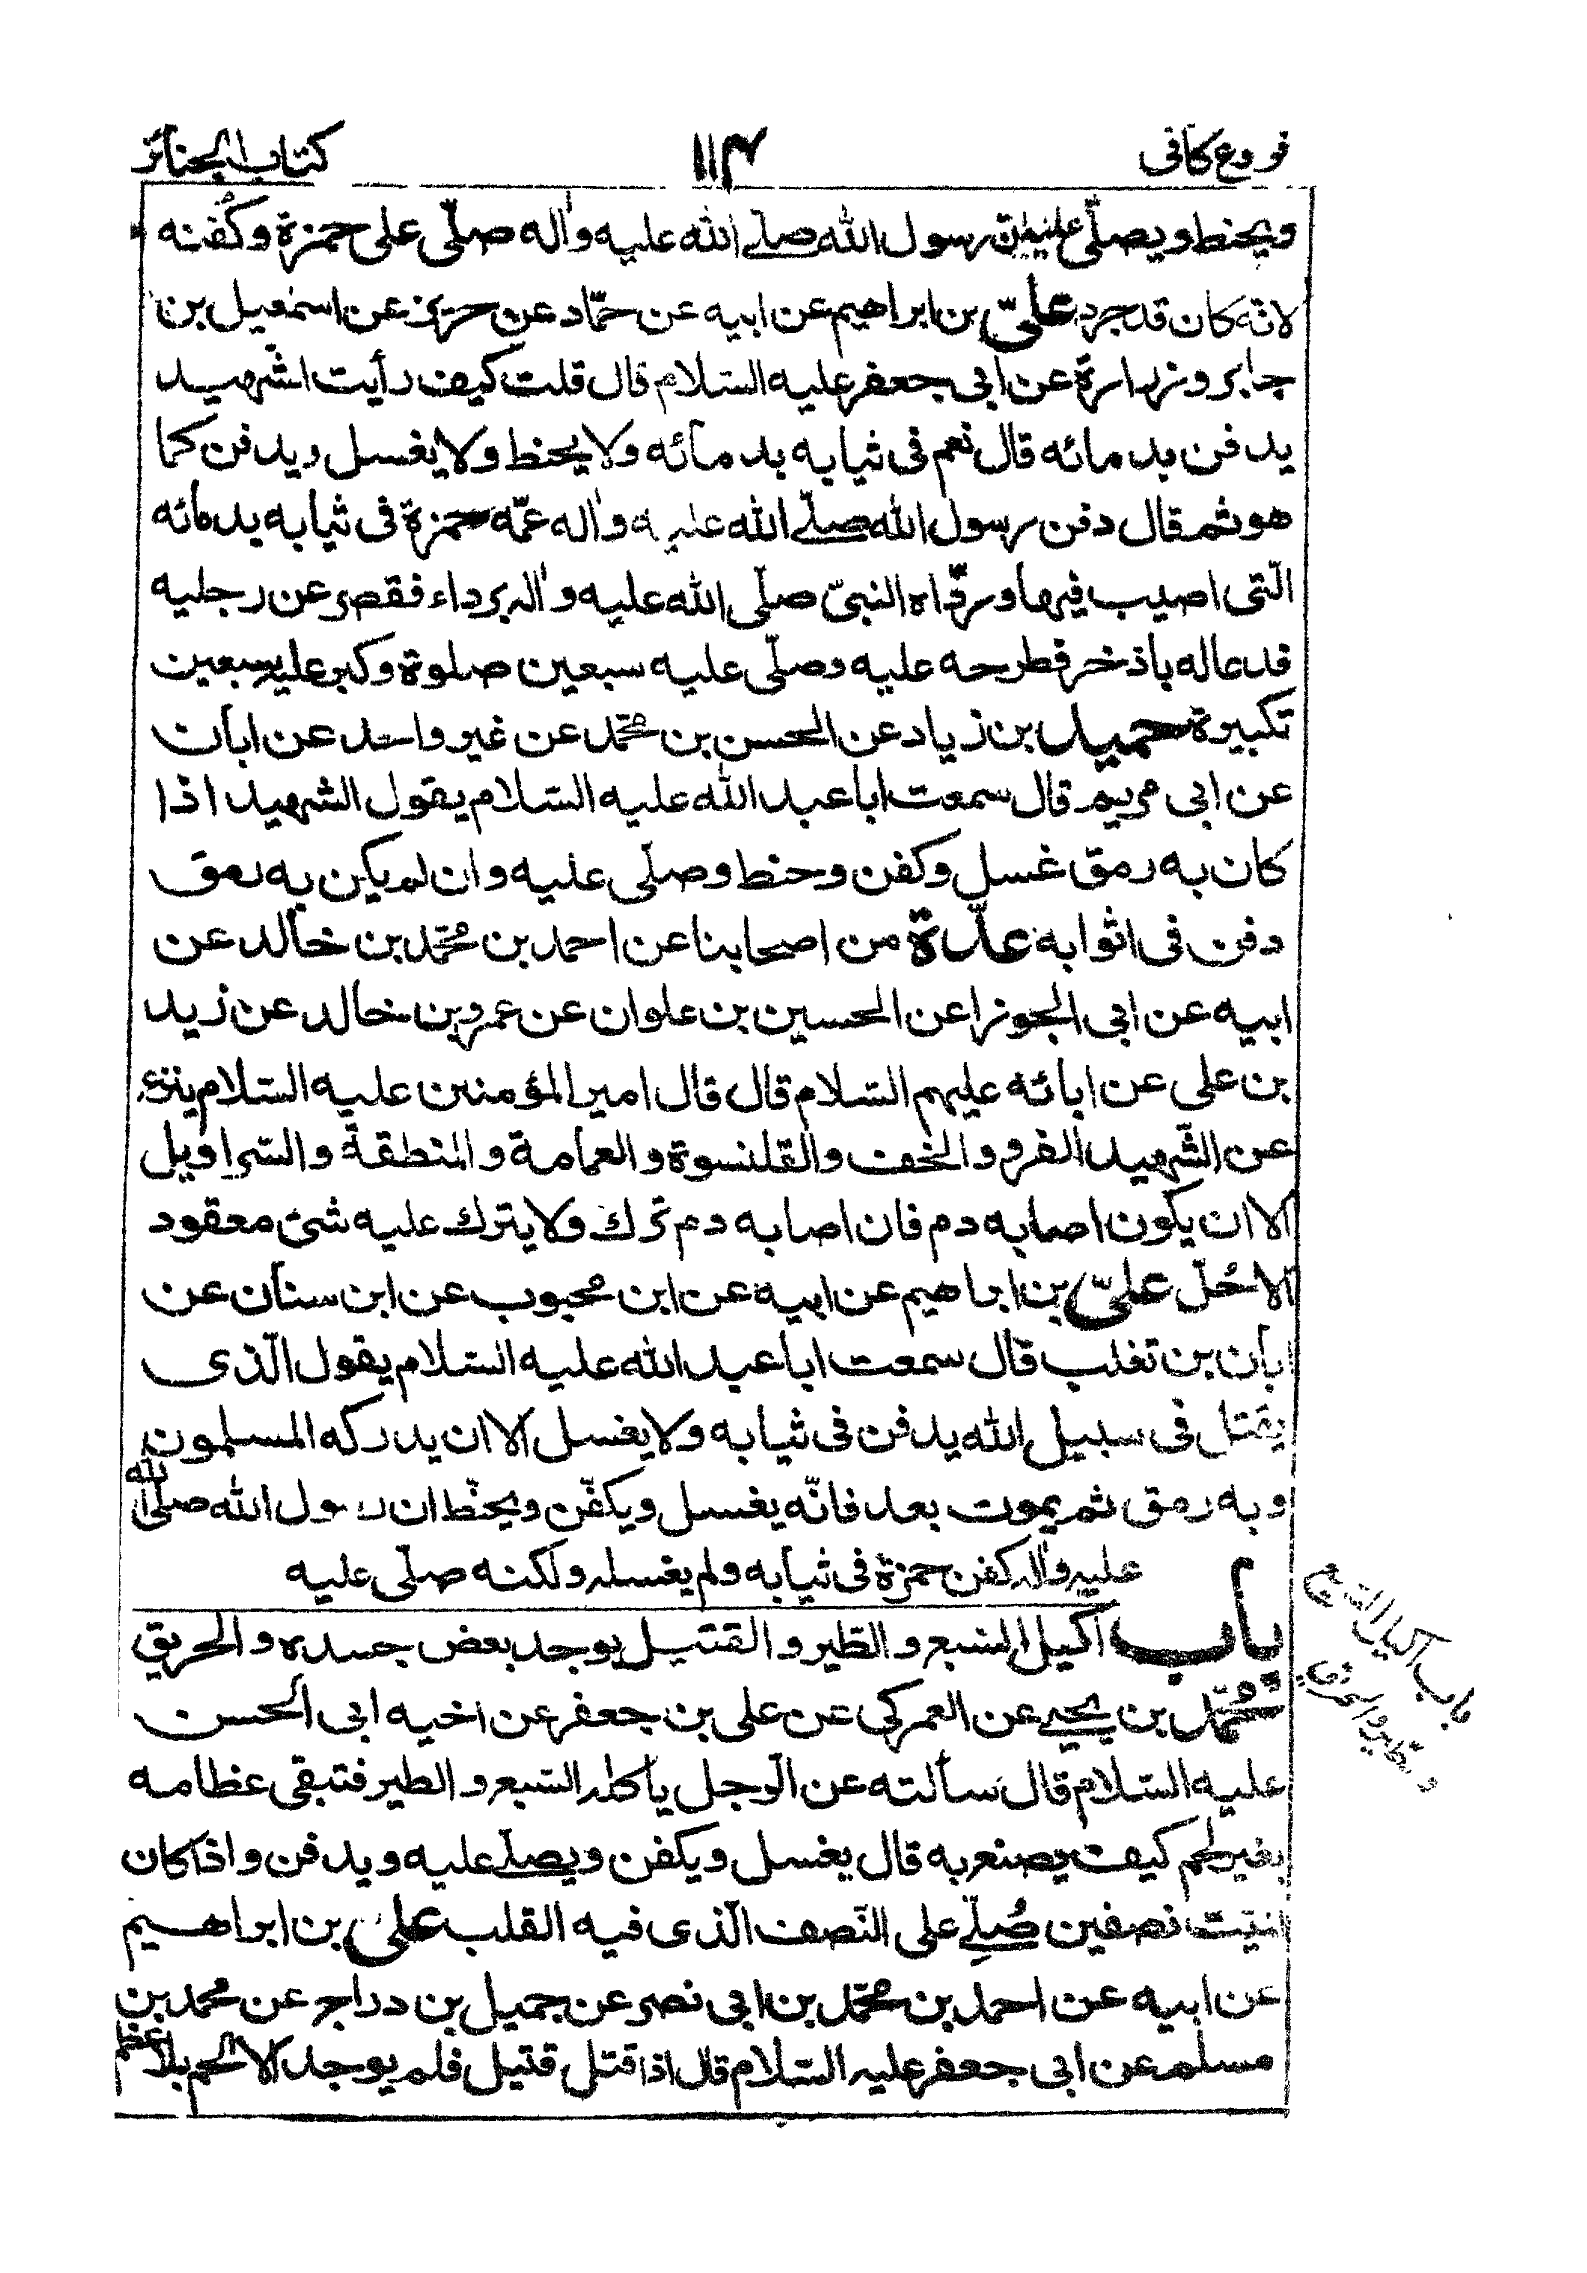 فروع كافى
١١٤
كتاب الجنائز
ويحنط ويصلّى عليه لان رسول الله صلى الله عليه واله صلّى على حمزة وكفنه
لانّه كان قد جرد علىّ بن ابراهيم عن ابيه عن حمّاد عن حريز عن اسمعيل بن
جابر وزرارة عن ابى جعفر عليه السّلام قال قلت كيف رأيت الشهيد
يدفن بدمائه قال نعم فى ثيابه بدمائه ولا يحنط ولا يغسل ويدفن كما
هو ثم قال دفن رسول الله صلّى الله عليه واله عمّه حمزة فى ثيابه بدمائه
الّتى اصيب فيها وردّاه النبىّ صلّى الله عليه واله برداء فقصر عن رجليه
فدعا له باذخر فطرحه عليه وصلّى عليه سبعين صلوة وكبر عليه سبعين
تكبيرة حميد بن زياد عن الحسن بن محمّد عن غير واحد عن ابان
عن ابى مريم قال سمعت ابا عبد الله عليه السّلام يقول الشهيد اذا
كان به رمق غسل وكفن وحنط وصلّى عليه وان لم يكن به رمق
دفن فى اثوابه عدّة من اصحابنا عن احمد بن محمّد بن خالد عن
ابيه عن ابى الجوزا عن الحسين بن علوان عن عمرو بن خالد عن زيد
بن على عن ابائه عليهم السّلام قال قال امير المؤمنين عليه السّلام ينزع
عن الشّهيد الفرو والخف والقلنسوة والعمامة والمنطقة والسّراويل
الا ان يكون اصابه دم فان اصابه دم ترك ولا يترك عليه شئ معقود
الا حُلّ علىّ بن ابراهيم عن ابيه عن ابن محبوب عن ابن سنان عن
ابان بن تغلب قال سمعت ابا عبد الله عليه السّلام يقول الّذى
يقتل فى سبيل الله يدفن فى ثيابه ولا يغسل الا ان يدركه المسلمون
وبه رمق ثم يموت بعد فانّه يغسل ويكفّن ويحنّط ان رسول الله صلى الله
عليه واله كفن حمزة فى ثيابه ولم يغسله ولكنه صلّى عليه
باب اكيل السّبع والطّير والقتيل يوجد بعض جسده والحريق
محمّد بن يحيى عن العمركى عن على بن جعفر عن اخيه ابى الحسن
عليه السّلام قال سألته عن الرّجل يأكله السّبع والطير فتبقى عظامه
بغير لحم كيف يصنع به قال يغسل ويكفن ويصلى عليه ويدفن واذا كان
الميّت نصفين صُلّى على النّصف الّذى فيه القلب على بن ابراهيم
عن ابيه عن احمد بن محمّد بن ابى نصر عن جميل بن دراج عن محمد بن
مسلم عن ابى جعفر عليه السّلام قال اذا قتل قتيل فلم يوجد الا لحم بلا عظم
باب اكيل السبع
و الطير والحريق